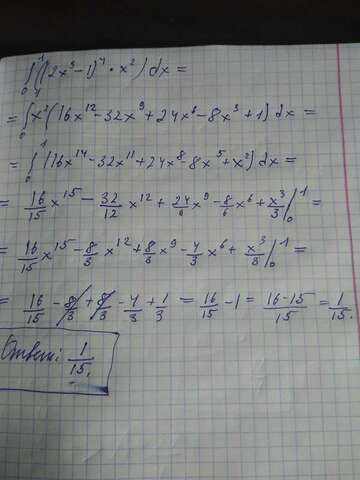 ∫₀¹((2x³-1)⁴·x²)dx=
=∫₀¹x²(16x¹²-32x⁹+24x⁶-8x³+1)dx=
=∫₀¹(16x¹⁴-32x¹¹+24x⁸-8x⁵+x²)dx=
= 16/15 x¹⁵ - 32/12 x¹² + 24/9 x⁹ - 8/6 x⁶ + x³/3 |₀¹ =
= 16/15 x¹⁵ - 8/3 x¹² + 8/3 x⁹ - 4/3 x⁶ + x³/3 |₀¹ =
= 16/15 - 8/3 + 8/3 - 4/3 + 1/3 = 16/15 - 1 = 16-15/15 = 1/15.
Ответ: 1/15.